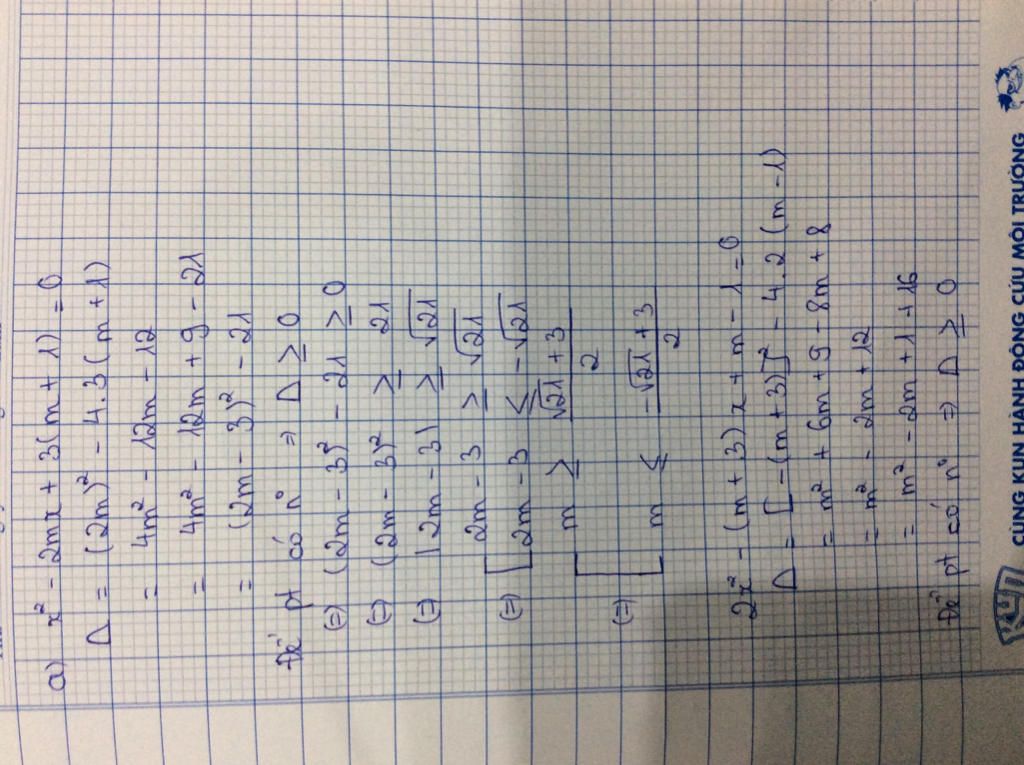 a) x² - 2mx + 3(m + 1) = 0
Δ = (2m)² - 4.3(m + 1)
= 4m² - 12m - 12
= 4m² - 12m + 9 - 21
= (2m - 3)² - 21
Để pt có n⁰ => Δ ≥ 0
(=) (2m - 3)² - 21 ≥ 0
(=) (2m - 3)² ≥ 21
(=) |2m - 3| ≥ √21
2m - 3 ≥ √21
(=) [ 2m - 3 ≤ -√21
m ≥ (√21 + 3)/2
(=) [
m ≤ (-√21 + 3)/2
2x² - (m + 3)x + m - 1 = 0
Δ = [-(m + 3)]² - 4.2(m - 1)
= m² + 6m + 9 - 8m + 8
= m² - 2m + 12
= m² - 2m + 1 + 16
Để pt có n⁰ => Δ ≥ 0
KUN CÙNG KUN HÀNH ĐỘNG CỨU MÔI TRƯỜNG